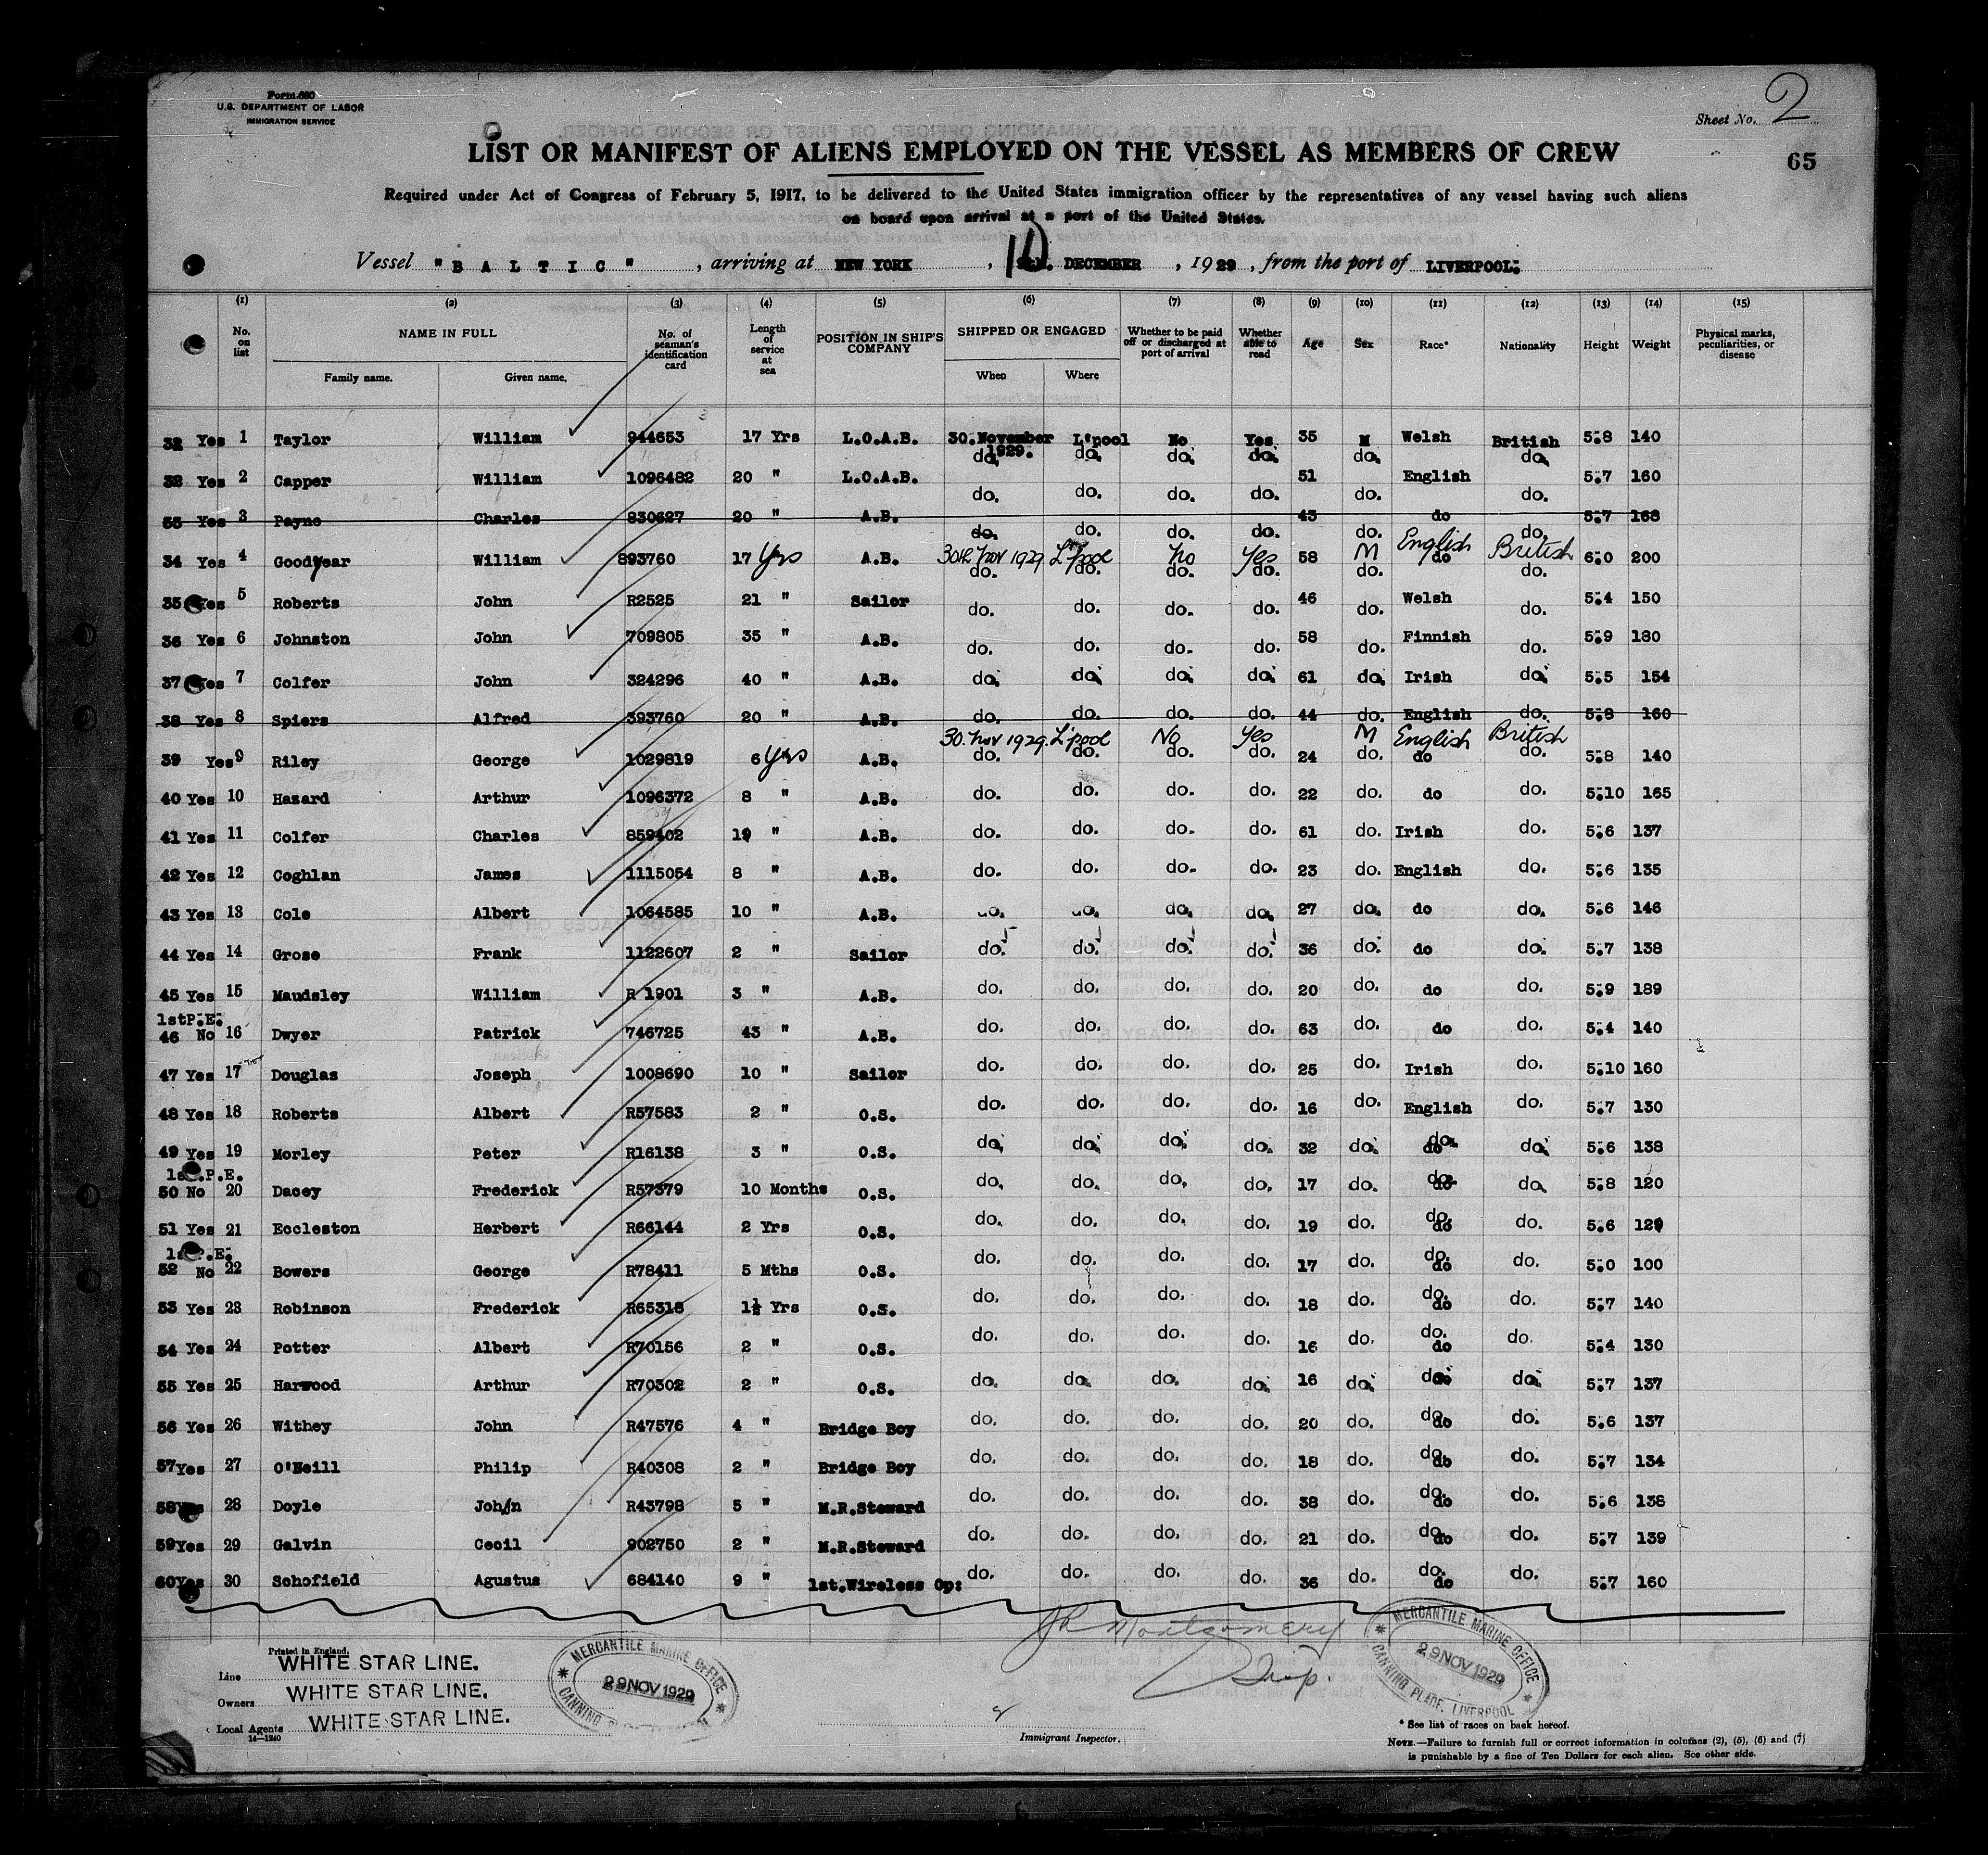 Form 680
U.S. DEPARTMENT OF LABOR
IMMIGRATION SERVICE
Sheet No. 2
65
LIST OR MANIFEST OF ALIENS EMPLOYED ON THE VESSEL AS MEMBERS OF CREW
Required under Act of Congress of February 5, 1917, to be delivered to the United States immigration officer by the representatives of any vessel having such aliens
on board upon arrival at a port of the United States.
Vessel "BALTIC", arriving at NEW YORK, 10 DECEMBER, 1929, from the port of LIVERPOOL:
(1) (2) (3) (4) (5) (6) (7) (8) (9) (10) (11) (12) (13) (14) (15)
No. on list NAME IN FULL No. of seaman's identification card Length of service at sea POSITION IN SHIP'S COMPANY SHIPPED OR ENGAGED Whether to be paid off or discharged at port of arrival Whether able to read Age Sex Race* Nationality Height Weight Physical marks, peculiarities, or disease
Family name. Given name. When Where
32 Yes 1 Taylor William 944653 17 Yrs L.O.A.B. 30.November 1929. L'pool No Yes 35 M Welsh British 5:8 140
do. do. do. do. do. do.
32 Yes 2 Capper William 1096482 20 " L.O.A.B. do. do. do. do. 51 do. English do. 5:7 160
33 Yes 3 Payne Charles 830627 20 " A.B. do. do. do. do. 43 do. do do. 5:7 168
34 Yes 4 Goodyear William 893760 17 Yrs A.B. 30th Nov 1929 L'pool No Yes 58 M English British 6:0 200
do. do. do. do. do. do do.
35 Yes 5 Roberts John R2525 21 " Sailor do. do. do. do. 46 do. Welsh do. 5:4 150
36 Yes 6 Johnston John 709805 35 " A.B. do. do. do. do. 58 do. Finnish do. 5:9 180
37 Yes 7 Colfer John 324296 40 " A.B. do. do. do. do. 61 do. Irish do. 5:5 154
38 Yes 8 Spiers Alfred 393760 20 " A.B. do. do. do. do. 44 do. English do. 5:8 160
30. Nov 1929. L'pool No Yes M English British
39 Yes 9 Riley George 1029819 6 Yrs A.B. do. do. do. do. 24 do. do do. 5:8 140
40 Yes 10 Hazard Arthur 1096372 8 " A.B. do. do. do. do. 22 do. do do. 5:10 165
41 Yes 11 Colfer Charles 859402 19 " A.B. do. do. do. do. 61 do. Irish do. 5:6 137
42 Yes 12 Coghlan James 1115054 8 " A.B. do. do. do. do. 23 do. English do. 5:6 135
43 Yes 13 Cole Albert 1064585 10 " A.B. do. do. do. do. 27 do. do do. 5:6 146
44 Yes 14 Grose Frank 1122607 2 " Sailor do. do. do. do. 36 do. do do. 5:7 138
45 Yes 15 Maudsley William R 1901 3 " A.B. do. do. do. do. 20 do. do do. 5:9 189
1st P.E.
46 No 16 Dwyer Patrick 746725 43 " A.B. do. do. do. do. 63 do. do do. 5:4 140
47 Yes 17 Douglas Joseph 1008690 10 " Sailor do. do. do. do. 25 do. Irish do. 5:10 160
48 Yes 18 Roberts Albert R57583 2 " O.S. do. do. do. do. 16 do. English do. 5:7 130
49 Yes 19 Morley Peter R16138 3 " O.S. do. do. do. do. 32 do. do. do do. 5:6 138
1st P.E.
50 No 20 Dacey Frederick R57379 10 Months O.S. do. do. do. do. 17 do. do. do do. 5:8 120
51 Yes 21 Eccleston Herbert R66144 2 Yrs O.S. do. do. do. do. 19 do. do. do do. 5:6 129
1st P.E.
52 No 22 Bowers George R78411 5 Mths O.S. do. do. do. do. 17 do. do. do do. 5:0 100
53 Yes 23 Robinson Frederick R65318 1½ Yrs O.S. do. do. do. do. 18 do. do. do do. 5:7 140
54 Yes 24 Potter Albert R70156 2 " O.S. do. do. do. do. 16 do. do. do do. 5:4 130
55 Yes 25 Harwood Arthur R70302 2 " O.S. do. do. do. do. 16 do. do. do do. 5:7 137
56 Yes 26 Withey John R47576 4 " Bridge Boy do. do. do. do. 20 do. do. do do. 5:6 137
57 Yes 27 O'Neill Philip R40308 2 " Bridge Boy do. do. do. do. 18 do. do. do do. 5:7 134
58 Yes 28 Doyle John R43798 5 " M.R.Steward do. do. do. do. 38 do. do. do do. 5:6 138
59 Yes 29 Galvin Cecil 902750 2 " M.R.Steward do. do. do. do. 21 do. do. do do. 5:7 139
60 Yes 30 Schofield Agustus 684140 9 " 1st.Wireless Op: do. do. do. do. 36 do. do. do do. 5:7 160
Montgomery
Printed in England.
Line WHITE STAR LINE.
Owners WHITE STAR LINE.
Local Agents WHITE STAR LINE.
14—1240
MERCANTILE MARINE OFFICE
29 NOV 1929
CANNING
MERCANTILE MARINE OFFICE
29 NOV 1929
CANNING PLACE, LIVERPOOL
Immigrant Inspector.
* See list of races on back hereof.
NOTE.—Failure to furnish full or correct information in columns (2), (5), (6) and (7)
is punishable by a fine of Ten Dollars for each alien. See other side.